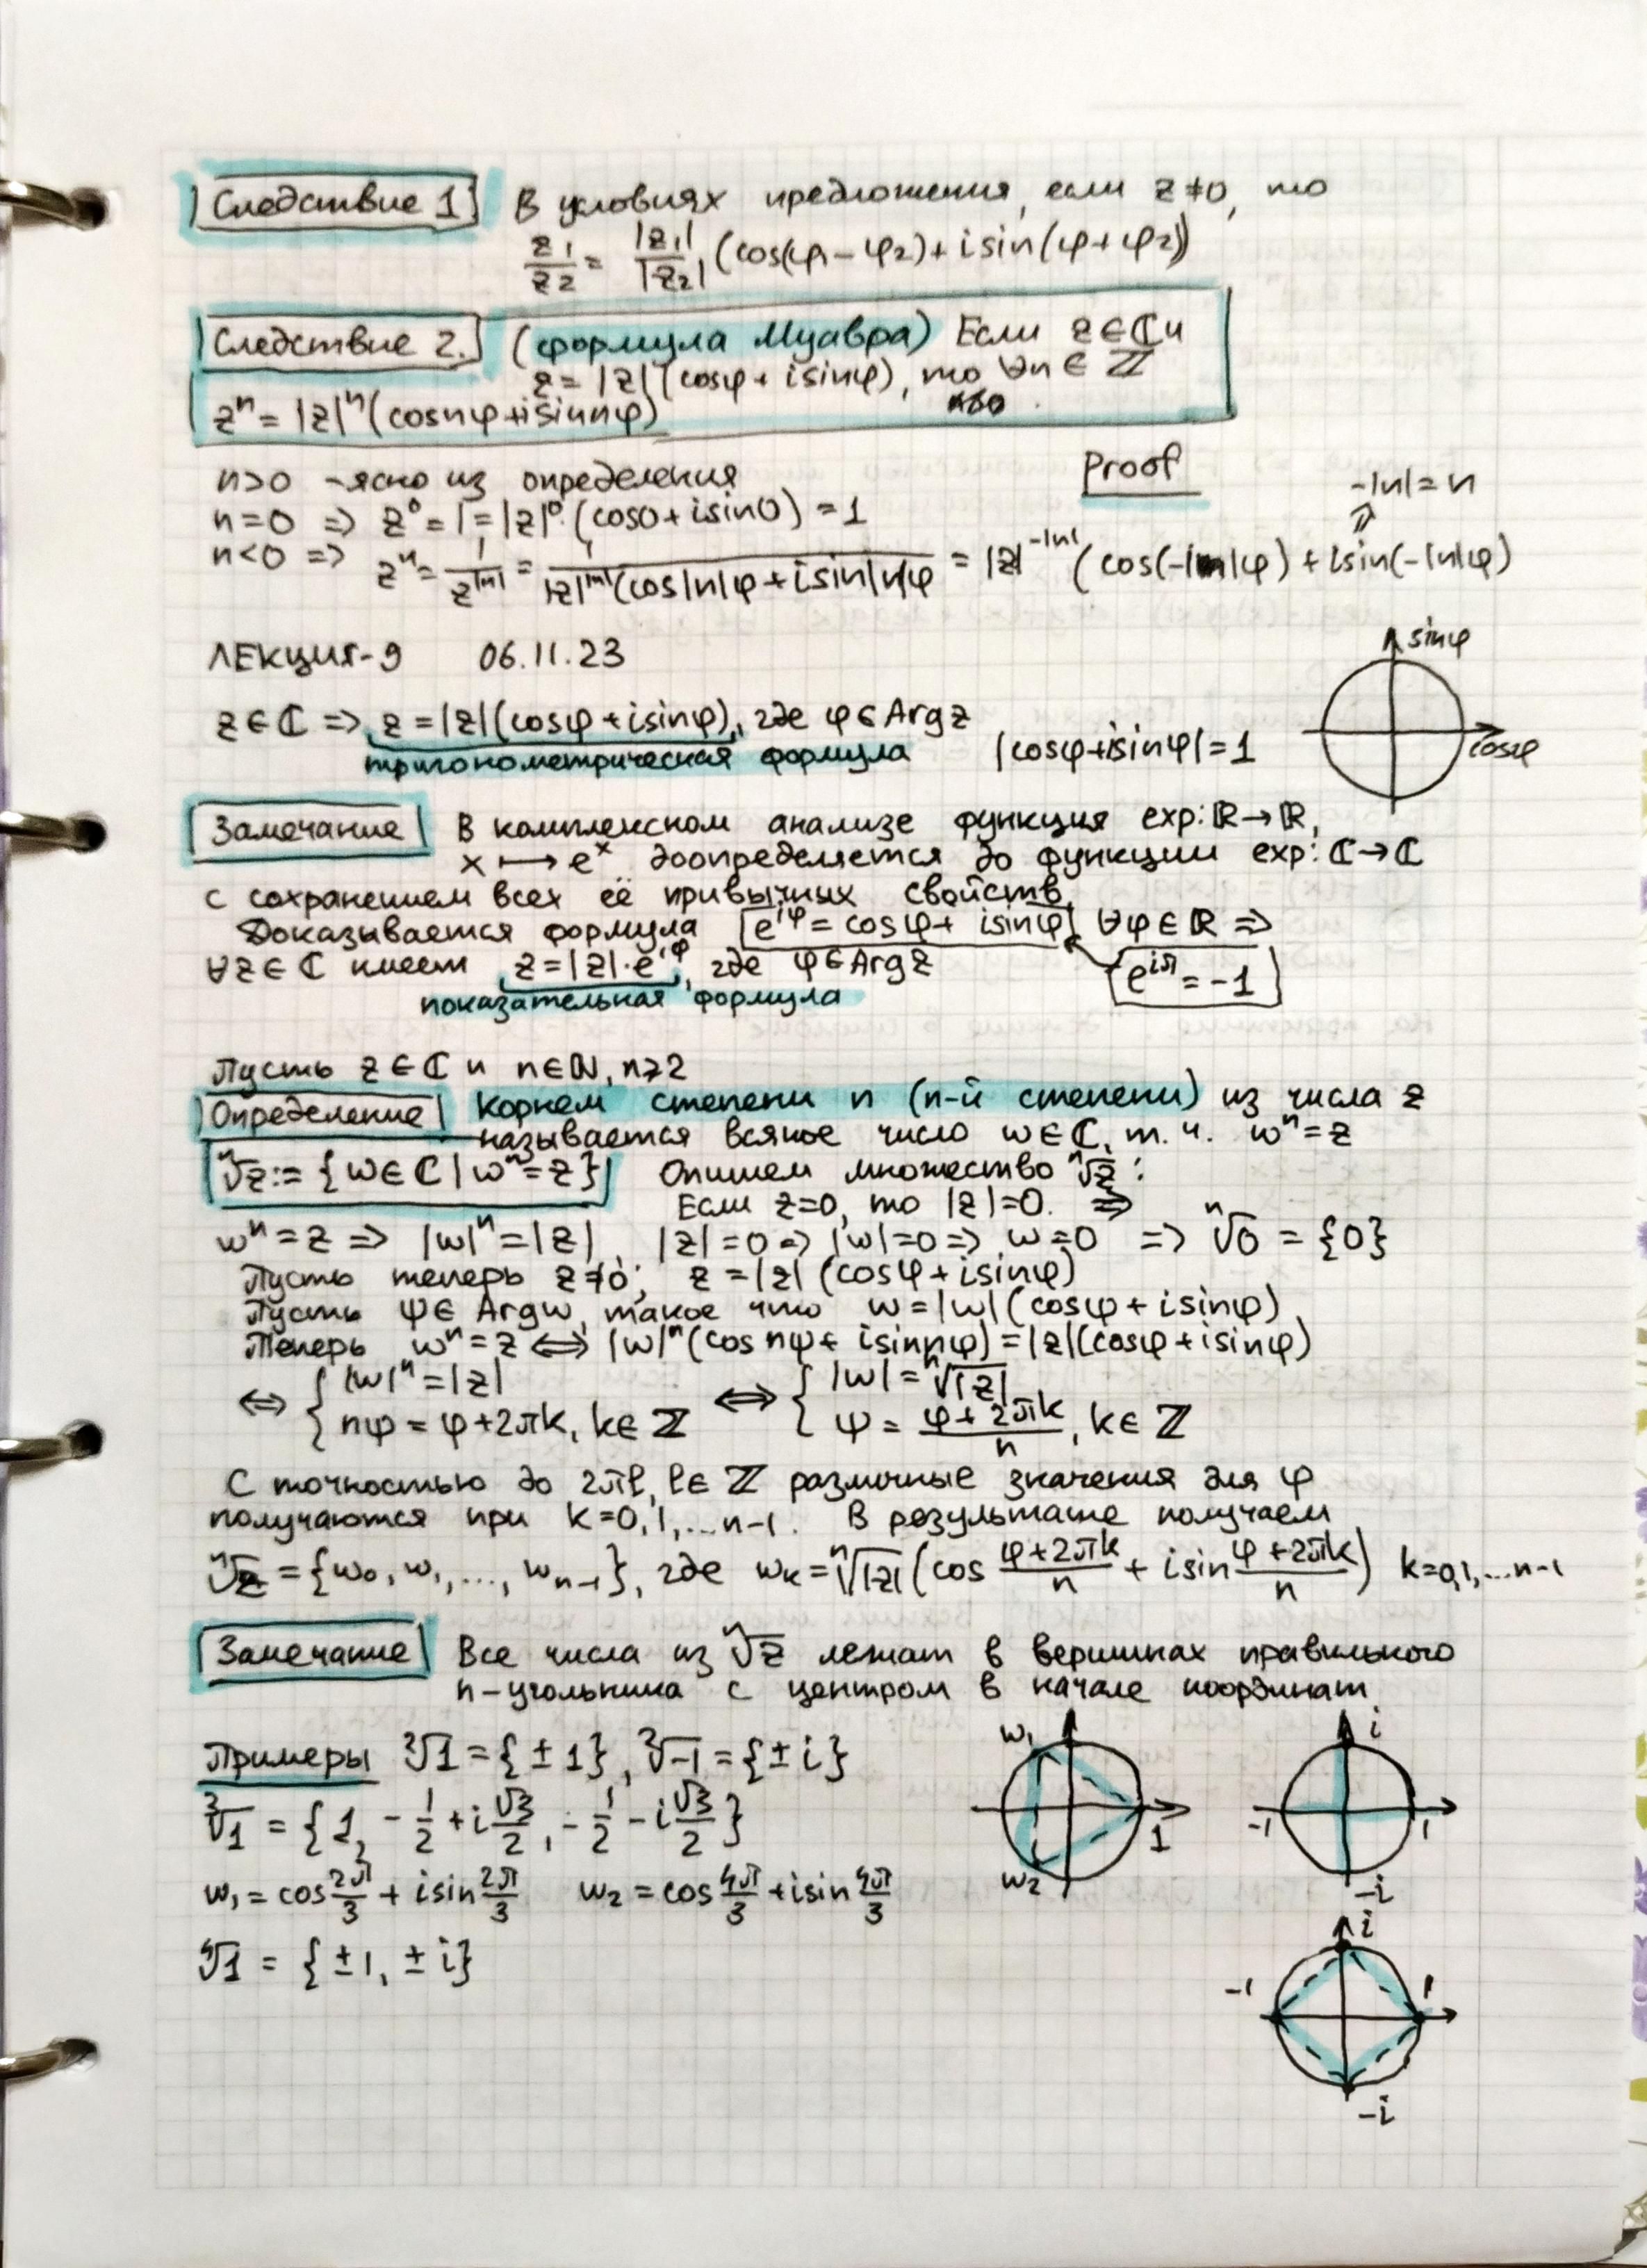 Следствие 1 В условиях предложения, если z≠0, то
z₁/z₂ = |z₁|/|z₂| (cos(φ₁-φ₂)+isin(φ+φ₂))
Следствие 2. (формула Муавра) Если z∈ℂ и
z=|z|(cosφ+isinφ), то ∀n∈ℤ
zⁿ=|z|ⁿ(cosnφ+isinnφ)
Proof
n>0 -ясно из определения
n=0 => z⁰=1=|z|⁰·(cos0+isin0)=1
-|n|=n
n<0 => zⁿ=1/z^|n| = 1/(|z|^|n|(cos|n|φ+isin|n|φ = |z|^(-|n|)(cos(-|n|φ)+isin(-|n|φ)
ЛЕКЦИЯ-9 06.11.23
sinφ
z∈ℂ => z=|z|(cosφ+isinφ), где φ∈Argz
тригонометрическая формула |cosφ+isinφ|=1
cosφ
Замечание В комплексном анализе функция exp:ℝ→ℝ,
x ⟼ eˣ доопределяется до функции exp: ℂ→ℂ
с сохранением всех её привычных свойств.
Доказывается формула e^(iφ)=cosφ+isinφ ∀φ∈ℝ =>
∀z∈ℂ имеет z=|z|·e^(iφ), где φ∈Argz e^(iπ)=-1
показательная формула
Пусть z∈ℂ и n∈ℕ, n⩾2
Определение Корнем степени n (n-й степени) из числа z
называется всякое число w∈ℂ, т.ч. wⁿ=z
ⁿ√z:={w∈ℂ|wⁿ=z} Опишем множество ⁿ√z:
Если z=0, то |z|=0. =>
wⁿ=z => |w|ⁿ=|z|, |z|=0 => |w|=0 => w=0 => ⁿ√0={0}
Пусть теперь z≠0; z=|z|(cosφ+isinφ)
Пусть ψ∈Argw, такое что w=|w|(cosφ+isinφ)
Теперь wⁿ=z ⟺ |w|ⁿ(cos nψ+isinnψ)=|z|(cosφ+isinφ)
⟺ { |w|ⁿ=|z| ⟺ { |w|=ⁿ√|z|
nψ=φ+2πk, k∈ℤ ψ=(φ+2πk)/n, k∈ℤ
С точностью до 2πl, l∈ℤ различные значения для φ
получаются при k=0,1,...n-1. В результате получаем
ⁿ√z={w₀,w₁,...,wₙ₋₁}, где wₖ=ⁿ√|z|(cos (φ+2πk)/n + isin (φ+2πk)/n) k=0,1,...n-1
Замечание Все числа из ⁿ√z лежат в вершинах правильного
n-угольника с центром в начале координат
Примеры ²√1={±1}, ²√-1={±i}
³√1={1, -1/2+i√3/2, -1/2-i√3/2}
w₁=cos 2π/3 + isin 2π/3 w₂=cos 4π/3 + isin 4π/3
⁴√1={±1, ±i}
w₁
1
w₂
i
-1
1
-i
i
-1
1
-i